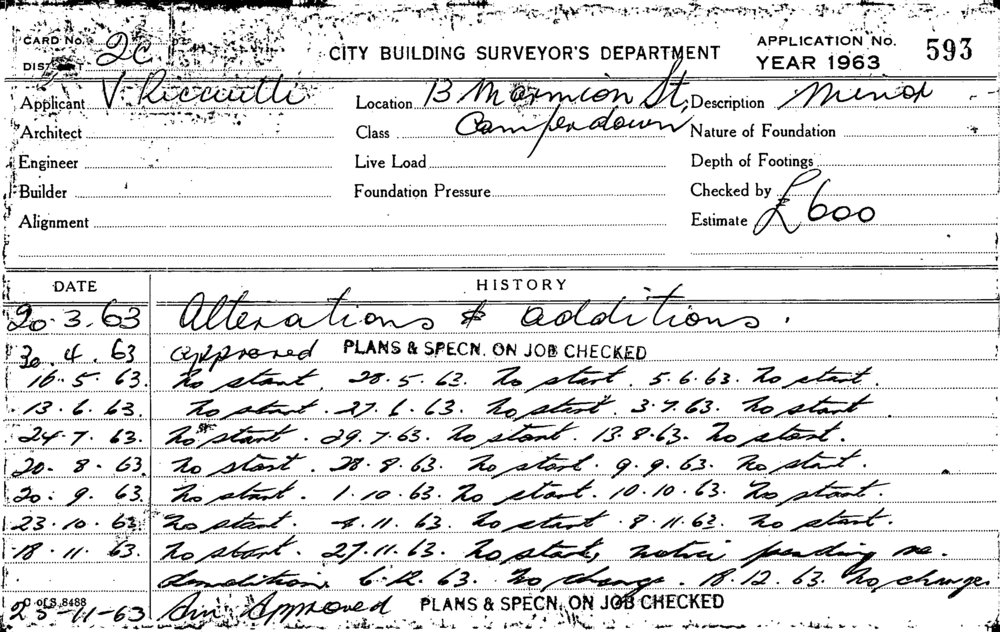 CARD No. 2C
DIST
CITY BUILDING SURVEYOR'S DEPARTMENT
APPLICATION No. 593
YEAR 1963
Applicant V. Ricciutti Location 13 Marmion St, Description Minor
Architect Class Camperdown Nature of Foundation
Engineer Live Load Depth of Footings
Builder Foundation Pressure Checked by
Alignment Estimate £600
DATE HISTORY
20.3.63 Alterations & additions.
30.4.63 approved PLANS & SPECN. ON JOB CHECKED
16.5.63. No start. 28.5.63. No start. 5.6.63. No start.
13.6.63. No start. 27.6.63. No start. 3.7.63. No start
24.7.63. No start. 29.7.63. No start. 13.8.63. No start.
20.8.63. No start. 28.8.63. No start. 9.9.63. No start.
20.9.63. No start. 1.10.63. No start. 10.10.63. No start.
23.10.63. No start. 4.11.63. No start. 8.11.63. No start.
18.11.63. No start. 27.11.63. No start, notice pending re.
demolition. 6.12.63. No change. 18.12.63. No change
8488
25-11-63 Approved PLANS & SPECN. ON JOB CHECKED